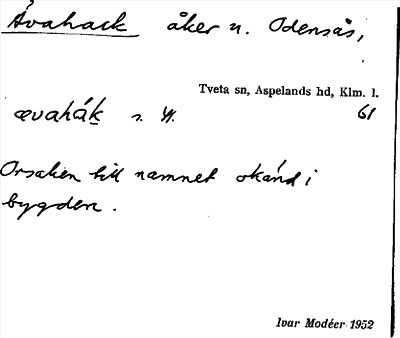 Åvahack åker n. Odensås,
Tveta sn, Aspelands hd, Klm. l.
ævahák s. st. 61
Orsaken till namnet okänd i
bygden.
Ivar Modéer 1952